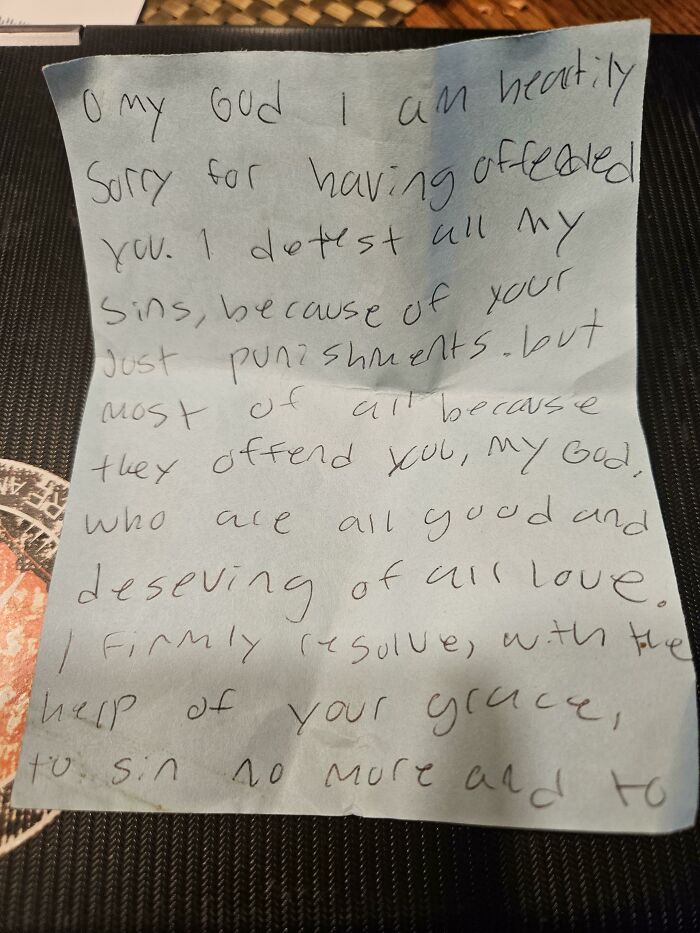 O my God I am heartily
Sorry for having offended
you. I detest all my
Sins, because of your
Just punishments. but
most of all because
they offend you, my God,
who are all good and
deseving of all love.
I Firmly resolve, with the
help of your grace,
to sin no more and to